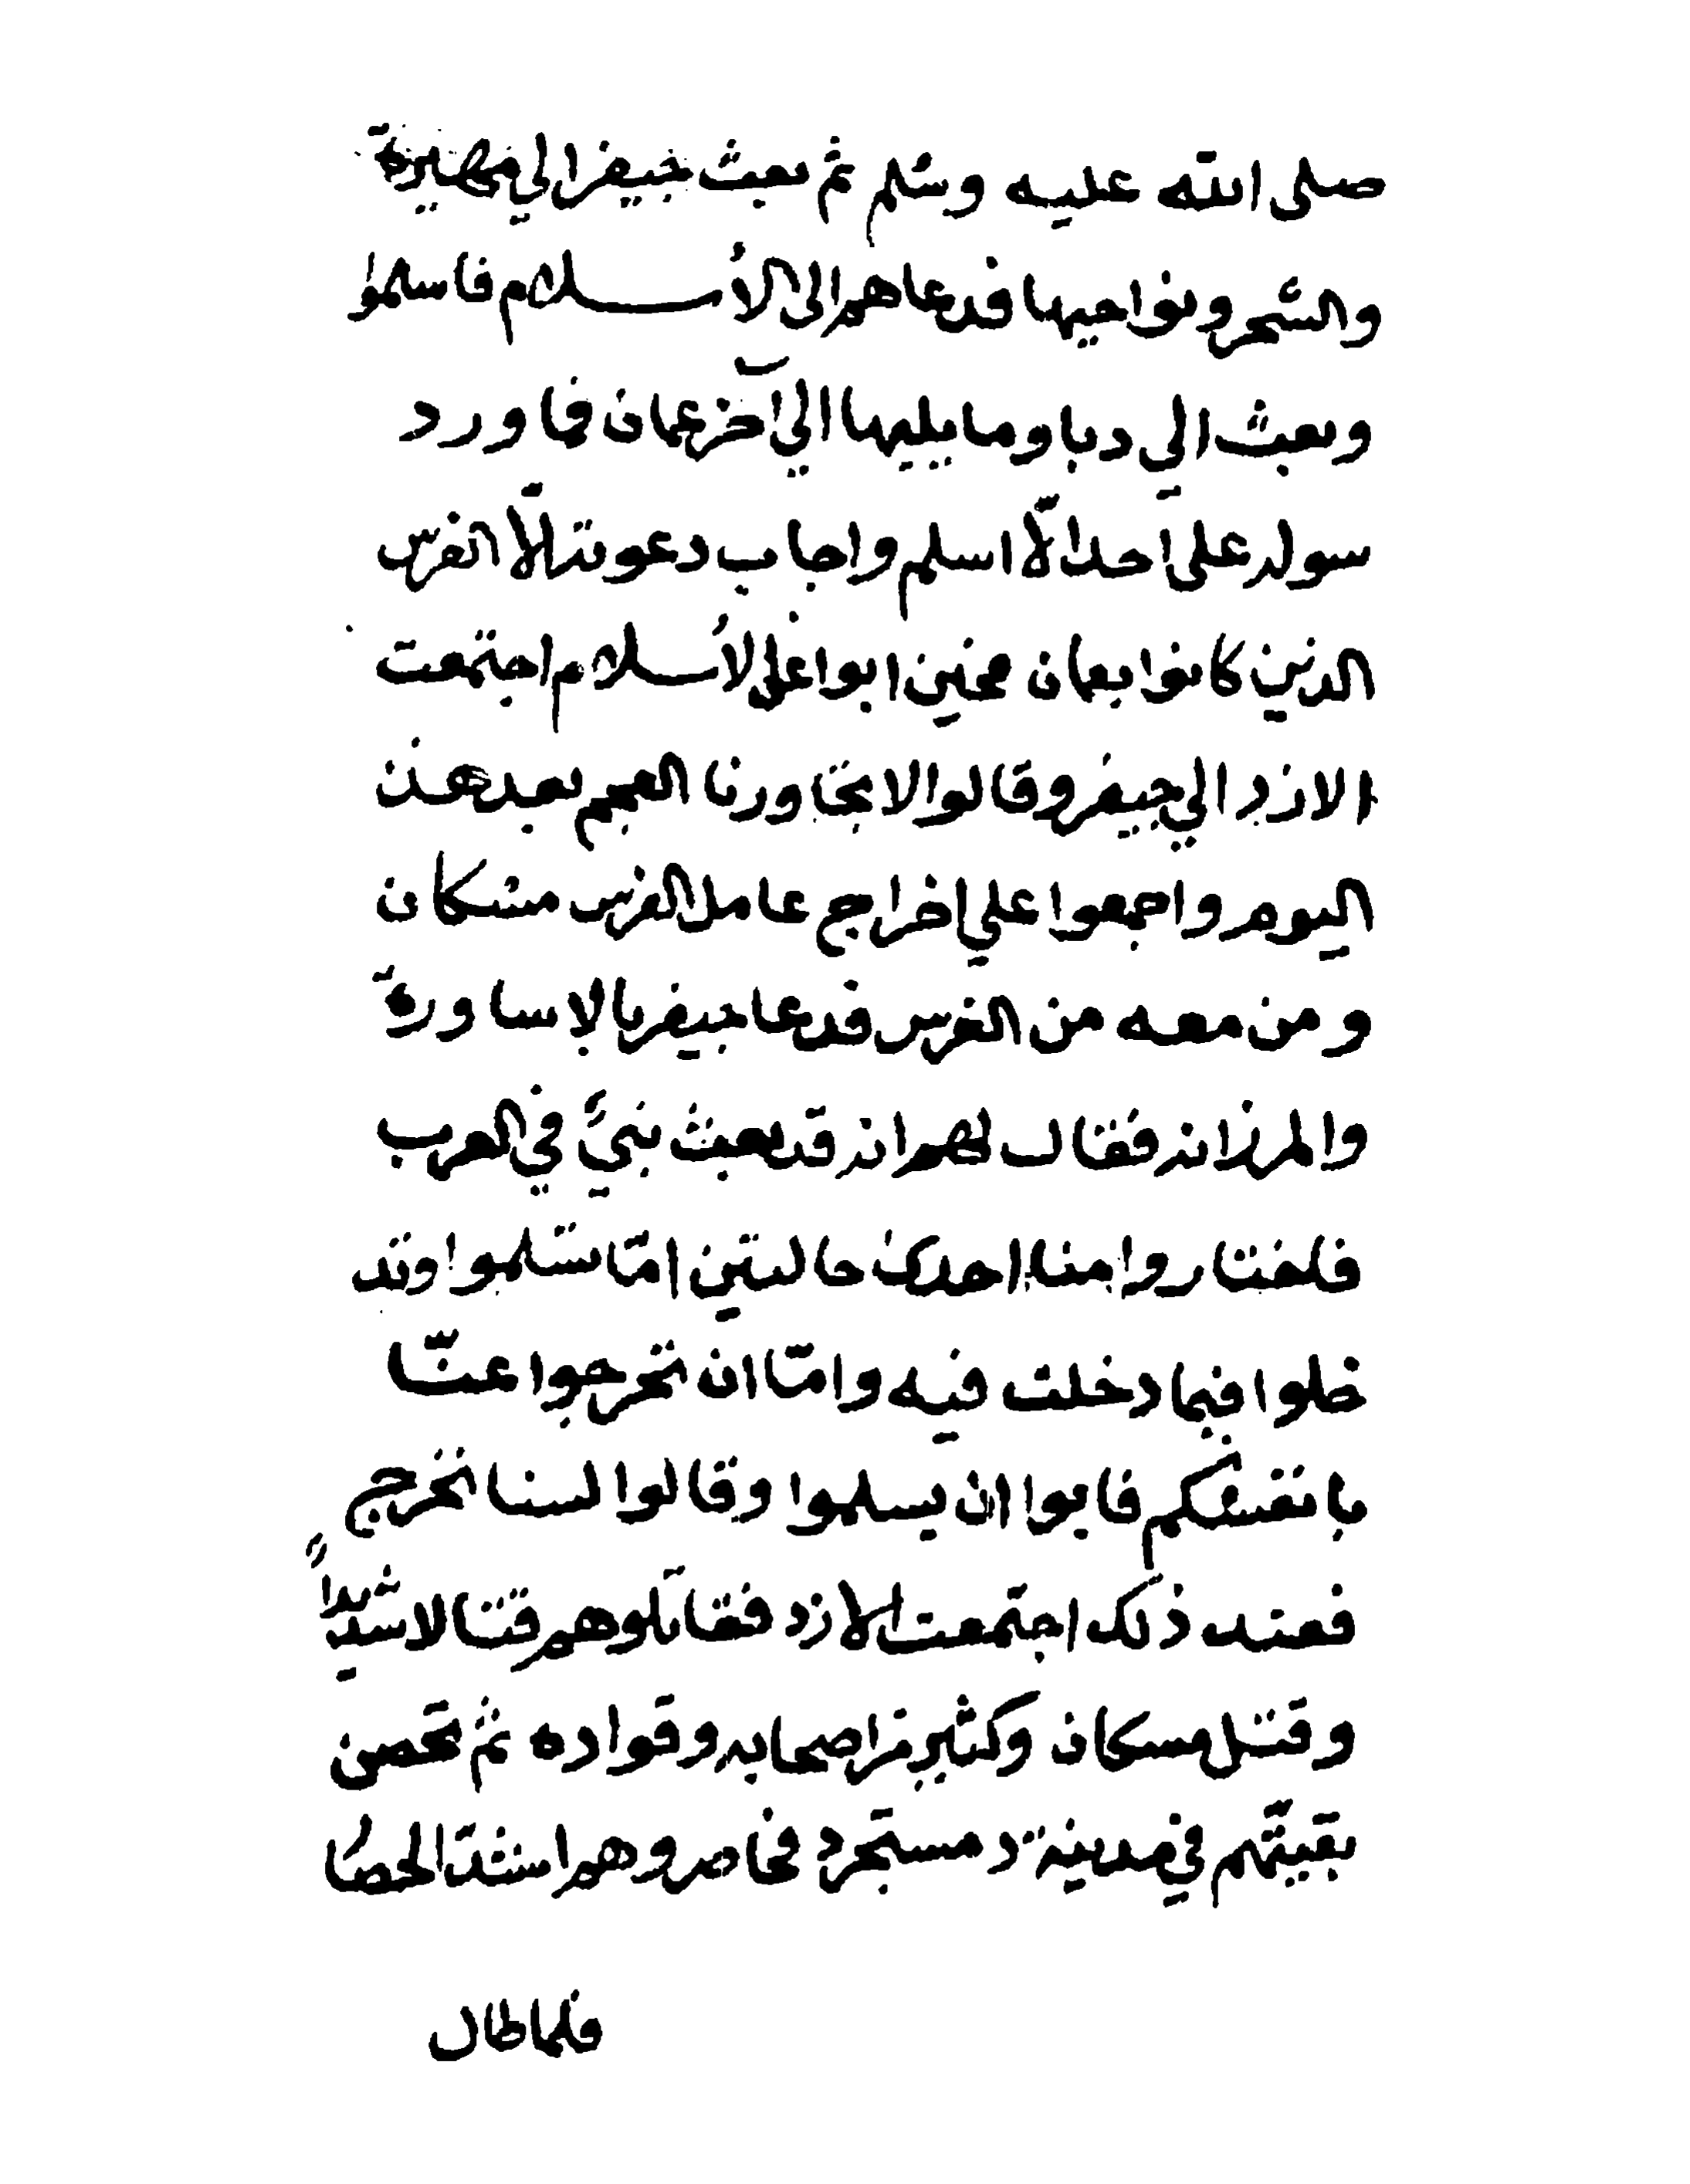 صلى الله عليه وسلم ثم بعث جيفر الي مهيرة
والشحر ونواحيها فدعاهم الى الأسلام فاسلموا
وبعث الي دبا وما يليها الي آخر عمان فما ورد
سوله على احد الّا اسلم واجاب دعوته الّا الفرس
الذين كانوا بعمان فحين ابوا عن الأسلام اجتمعت
الازد الي جيفر وقالوا لا تجاورنا العجم بعد هذ
اليوم واجمعوا علي اخراج عامل الفرس مسكان
ومن معه من الفرس فدعا جيفر بالاساورة
والمرزانه فقال لهم انه قد بعث نبيّ في العرب
فلختاروا منا احدى حالتين امّا تسلموا وتد
خلوا فيما دخلت فيه وامّا ان تخرجوا عنّا
بانفسكم فابوا ان يسلموا وقالوا لسنا نخرج
فعند ذلك اجتمعت الازد فقاتلوهم قتالا شديداً
وقتل مسكان وكثير من اصحابه وقواده ثم تحصن
بقيتهم في مدينة دمستجرد فحاصروهم اشدّ الحصا
فلما طال